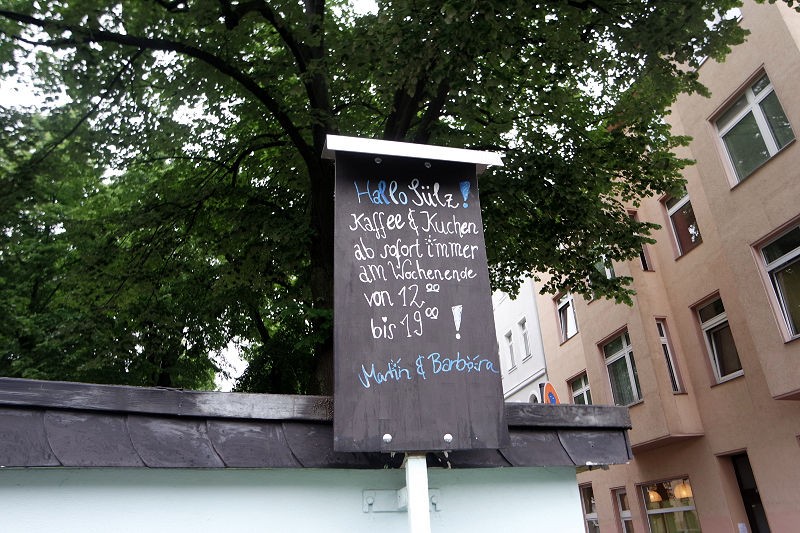 Hallo Sülz!
Kaffee & Kuchen
ab sofort immer
am Wochenende
von 12⁰⁰
bis 19⁰⁰!
Martin & Barbara